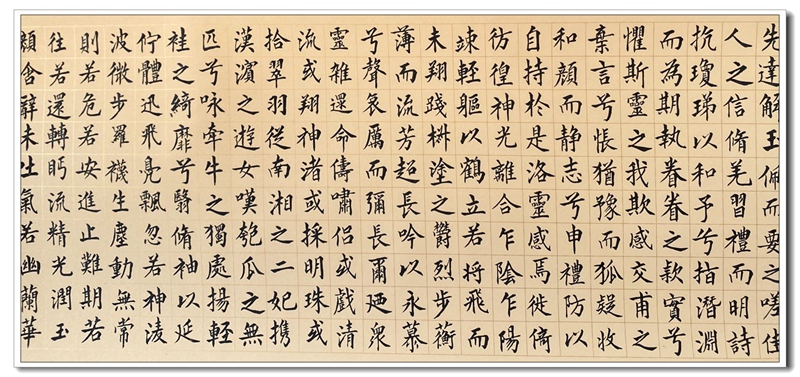 先達解玉佩而要之嗟佳
人之信脩羌習禮而明詩
抗瓊珶以和予兮指潛淵
而為期執眷眷之款實兮
懼斯靈之我欺感交甫之
棄言兮悵猶豫而狐疑收
和顏而静志兮申禮防以
自持於是洛靈感焉徙倚
彷徨神光離合乍陰乍陽
竦輕軀以鶴立若將飛而
未翔踐椒塗之鬱烈步蘅
薄而流芳超長吟以永慕
兮聲哀厲而彌長爾迺眾
靈雜遝命儔嘯侶或戲清
流或翔神渚或採明珠或
拾翠羽從南湘之二妃携
漢濱之遊女嘆匏瓜之無
匹兮咏牽牛之獨處揚輕
袿之綺靡兮翳脩袖以延
佇體迅飛鳧飄忽若神淩
波微步羅襪生塵動無常
則若危若安進止難期若
往若還轉眄流精光潤玉
顏含辭未吐氣若幽蘭華